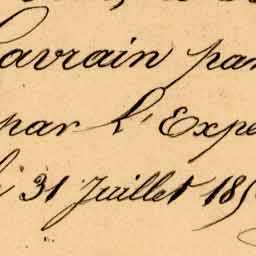 avrain par
par l'Expe
31 Juillet 18